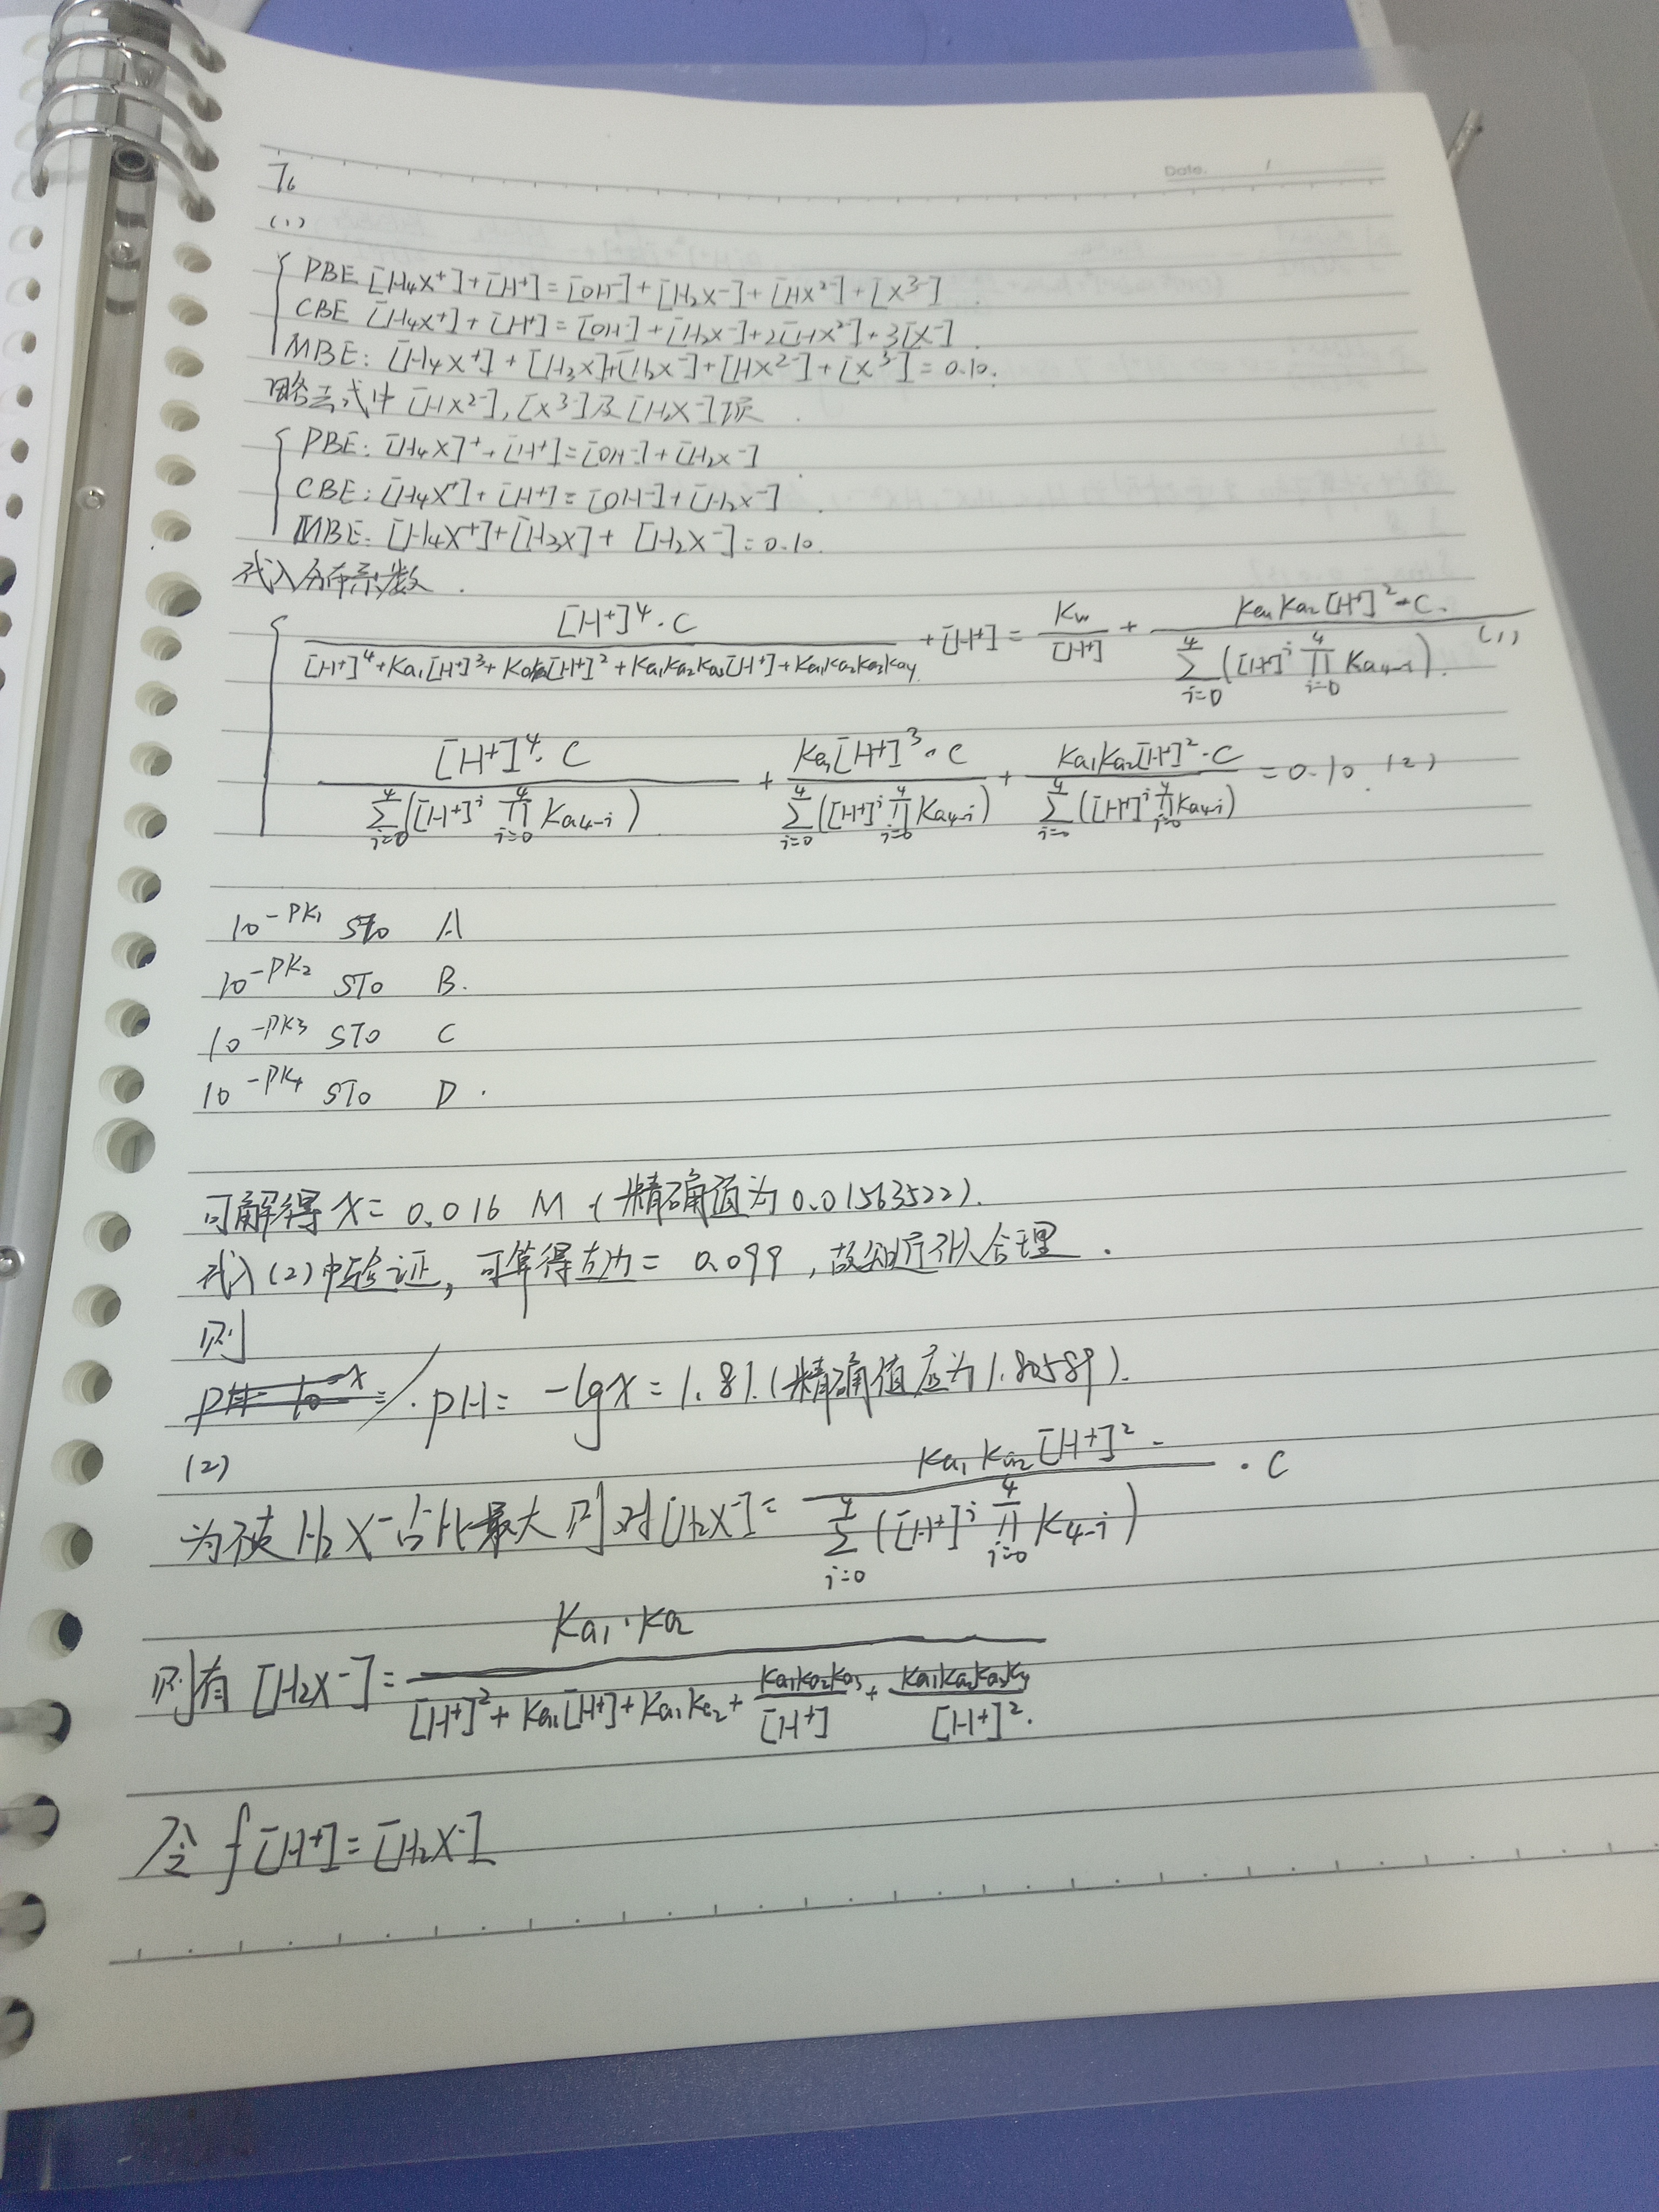 Date. /
7.
(1)
PBE [H₄X⁺]+[H⁺]=[OH⁻]+[H₂X⁻]+[HX²⁻]+[X³⁻]
CBE [H₄X⁺]+[H⁺]=[OH⁻]+[H₂X⁻]+2[HX²⁻]+3[X⁻].
MBE: [H₄X⁺]+[H₃X]+[H₂X⁻]+[HX²⁻]+[X³⁻]=0.10.
略去式中[HX²⁻],[X³⁻]及[H₂X⁻]项.
PBE: [H₄X]⁺+[H⁺]=[OH⁻]+[H₂X⁻]
CBE: [H₄X⁺]+[H⁺]=[OH⁻]+[H₂X⁻].
MBE: [H₄X⁺]+[H₃X]+[H₂X⁻]=0.10.
代入分布系数.
[H⁺]⁴·C / ([H⁺]⁴+Ka₁[H⁺]³+Ka₁Ka₂[H⁺]²+Ka₁Ka₂Ka₃[H⁺]+Ka₁Ka₂Ka₃Ka₄) + [H⁺] = Kw/[H⁺] + Ka₁Ka₂[H⁺]²·C. / Σ⁴ᵢ₌₀([H⁺]ⁱ Π⁴ᵢ₌₀ Ka₄₋ᵢ). (1)
[H⁺]⁴·C / Σ⁴ᵢ₌₀([H⁺]ⁱ Π⁴ᵢ₌₀ Ka₄₋ᵢ) + Ka₁[H⁺]³·C / Σ⁴ᵢ₌₀([H⁺]ⁱ Π⁴ᵢ₌₀ Ka₄₋ᵢ) + Ka₁Ka₂[H⁺]²·C / Σ⁴ᵢ₌₀([H⁺]ⁱ Π⁴ᵢ₌₀ Ka₄₋ᵢ) = 0.10. (2)
10^-PK₁ STO A
10^-PK₂ STO B.
10^-PK₃ STO C
10^-PK₄ STO D.
可解得 x = 0.016 M (精确值为0.01563522).
代入(2)中验证,可算得左边= 0.099,故知近似合理.
则
pH= 10^-x = . pH= -lgx = 1.81.(精确值应为1.80589).
(2)
为使H₂X⁻占比最大 则对[H₂X⁻]= Ka₁Ka₂[H⁺]² / Σ⁴ᵢ₌₀([H⁺]ⁱ Π⁴ᵢ₌₀ K₄₋ᵢ) · C
则有[H₂X⁻]= Ka₁·Ka₂ / ([H⁺]²+Ka₁[H⁺]+Ka₁Ka₂+Ka₁Ka₂Ka₃/[H⁺]+Ka₁Ka₂Ka₃K₄/[H⁺]²).
令 f[H⁺]=[H₂X⁻]